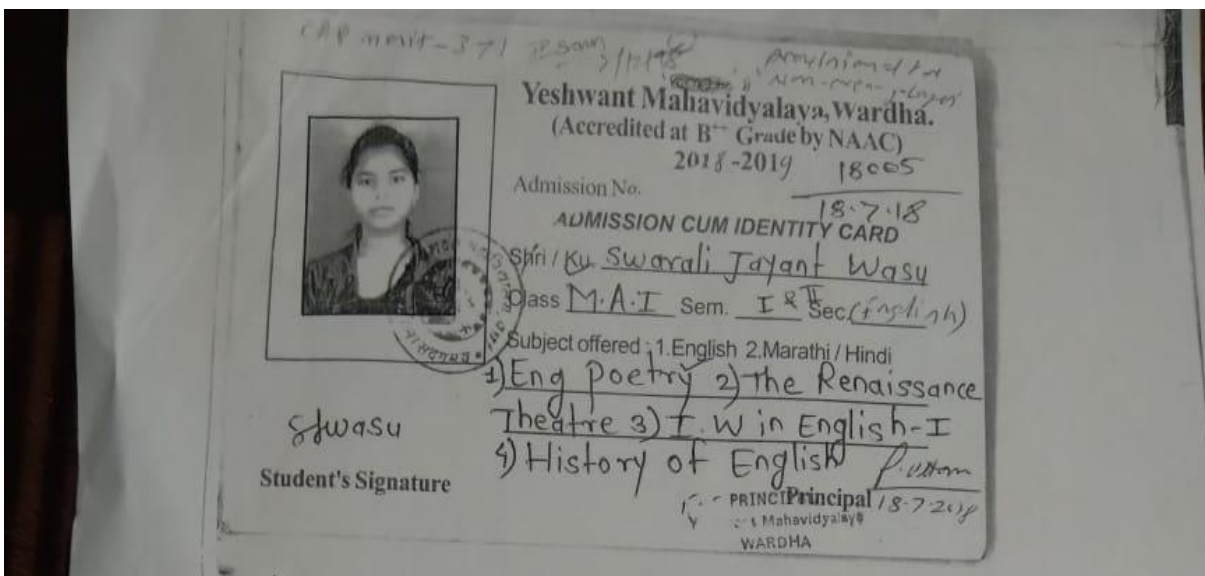 CAP merit-371
Provisional for
Yeshwant Mahavidyalaya, Wardha.
(Accredited at B++ Grade by NAAC)
2018-2019
18005
Admission No.
18.7.18
ADMISSION CUM IDENTITY CARD
Shri / Ku. Swarali Jayant Wasu
Class M.A.I Sem. I & II Sec. (English)
Subject offered : 1.English 2.Marathi / Hindi
1) Eng Poetry 2) The Renaissance
Theatre 3) I.W in English-I
4) History of English
SJWasu
Student's Signature
PRINCIPrincipal 18-7-2018
Mahavidyalaya
WARDHA